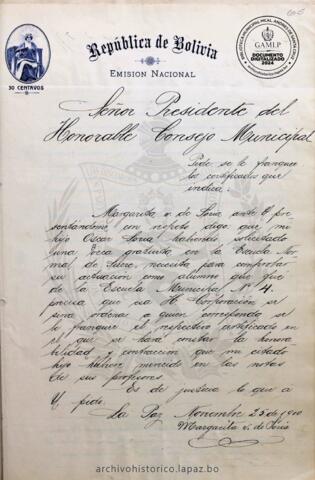 República de Bolivia
Emision Nacional
30 CENTAVOS
GAMLP
DOCUMENTO
DIGITALIZADO
2024
Señor Presidente del
Honorable Consejo Municipal
Pide se le franquee
los certificados que
indica.
Margarita v. de Soria ante U. pre
sentándome, con respeto digo: que mi
hijo Oscar Soria habiendo solicitado
una beca gratuita en la Escuela Nor
mal de Sucre, necesita para comprobar
su actuación como alumno que fué
de la Escuela Municipal Nº 4.
precisa que esa H. Corporación se
sirva ordenar a quien corresponda se
le franquee el respectivo certificado en
el que se hará constar la honora
bilidad y contracción que mi citado
hijo hubiese merecido en las notas
de sus profesores.
Es de justicia lo que a
U. pide.
La Paz, Noviembre 25 de 1910
Margarita v. de Soria
archivohistorico.lapaz.bo